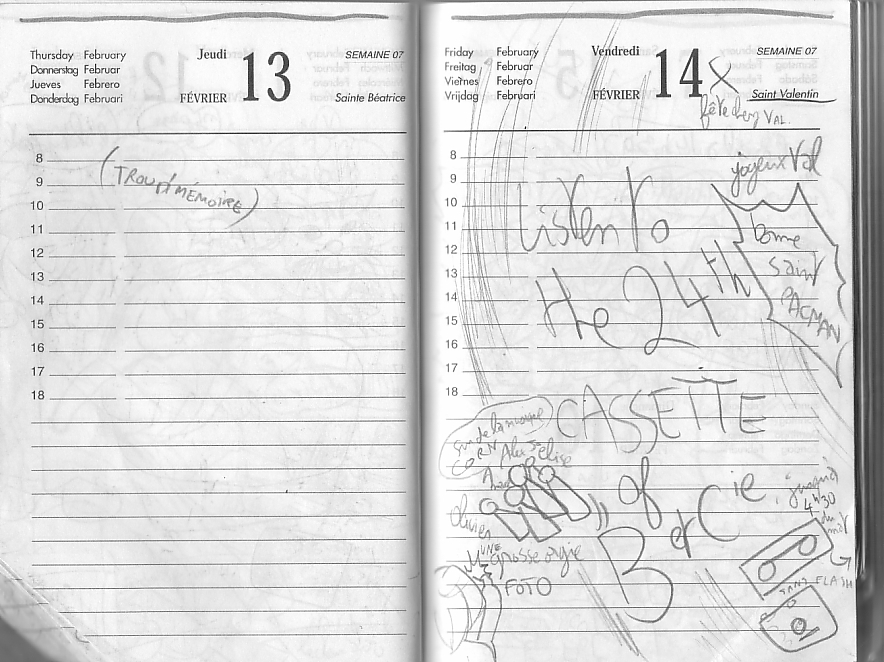 Thursday February
Donnerstag Februar
Jueves Febrero
Donderdag Februari
Jeudi
FÉVRIER
13
SEMAINE 07
Sainte Béatrice
8
(TROU D'MÉMOIRE)
9
10
11
12
13
14
15
16
17
18
Friday February
Freitag Februar
Viernes Febrero
Vrijdag Februari
Vendredi
FÉVRIER
14
SEMAINE 07
Saint Valentin
fête chez VAL.
8
9
10
11
12
13
14
15
16
17
18
joyeux Val
bonne
saint
PACMAN
Listen to
the 24th
CASSETTE
of
BerCie
CORN
Olivier
UNE
grosse orgie
FOTO
jusqu'à
4h30
du mat
SANS FLASH